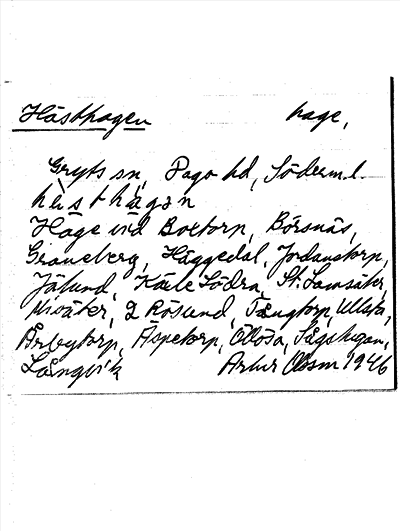 Hästhagen hage,
Gryts sn, Daga hd, Söderml.
hä̀sthágan
Hage vid Boetorp, Börsnäs,
Graneberg, Häggedal, Jordanstorp,
Jälund, Kärle Södra, St. Lamsäter,
2 Rösund, Tängtorp, Ullaka,
Årbytorp, Äspetorp, Ölösa, Sågstugan,
Långvik Artur Olsson 1946